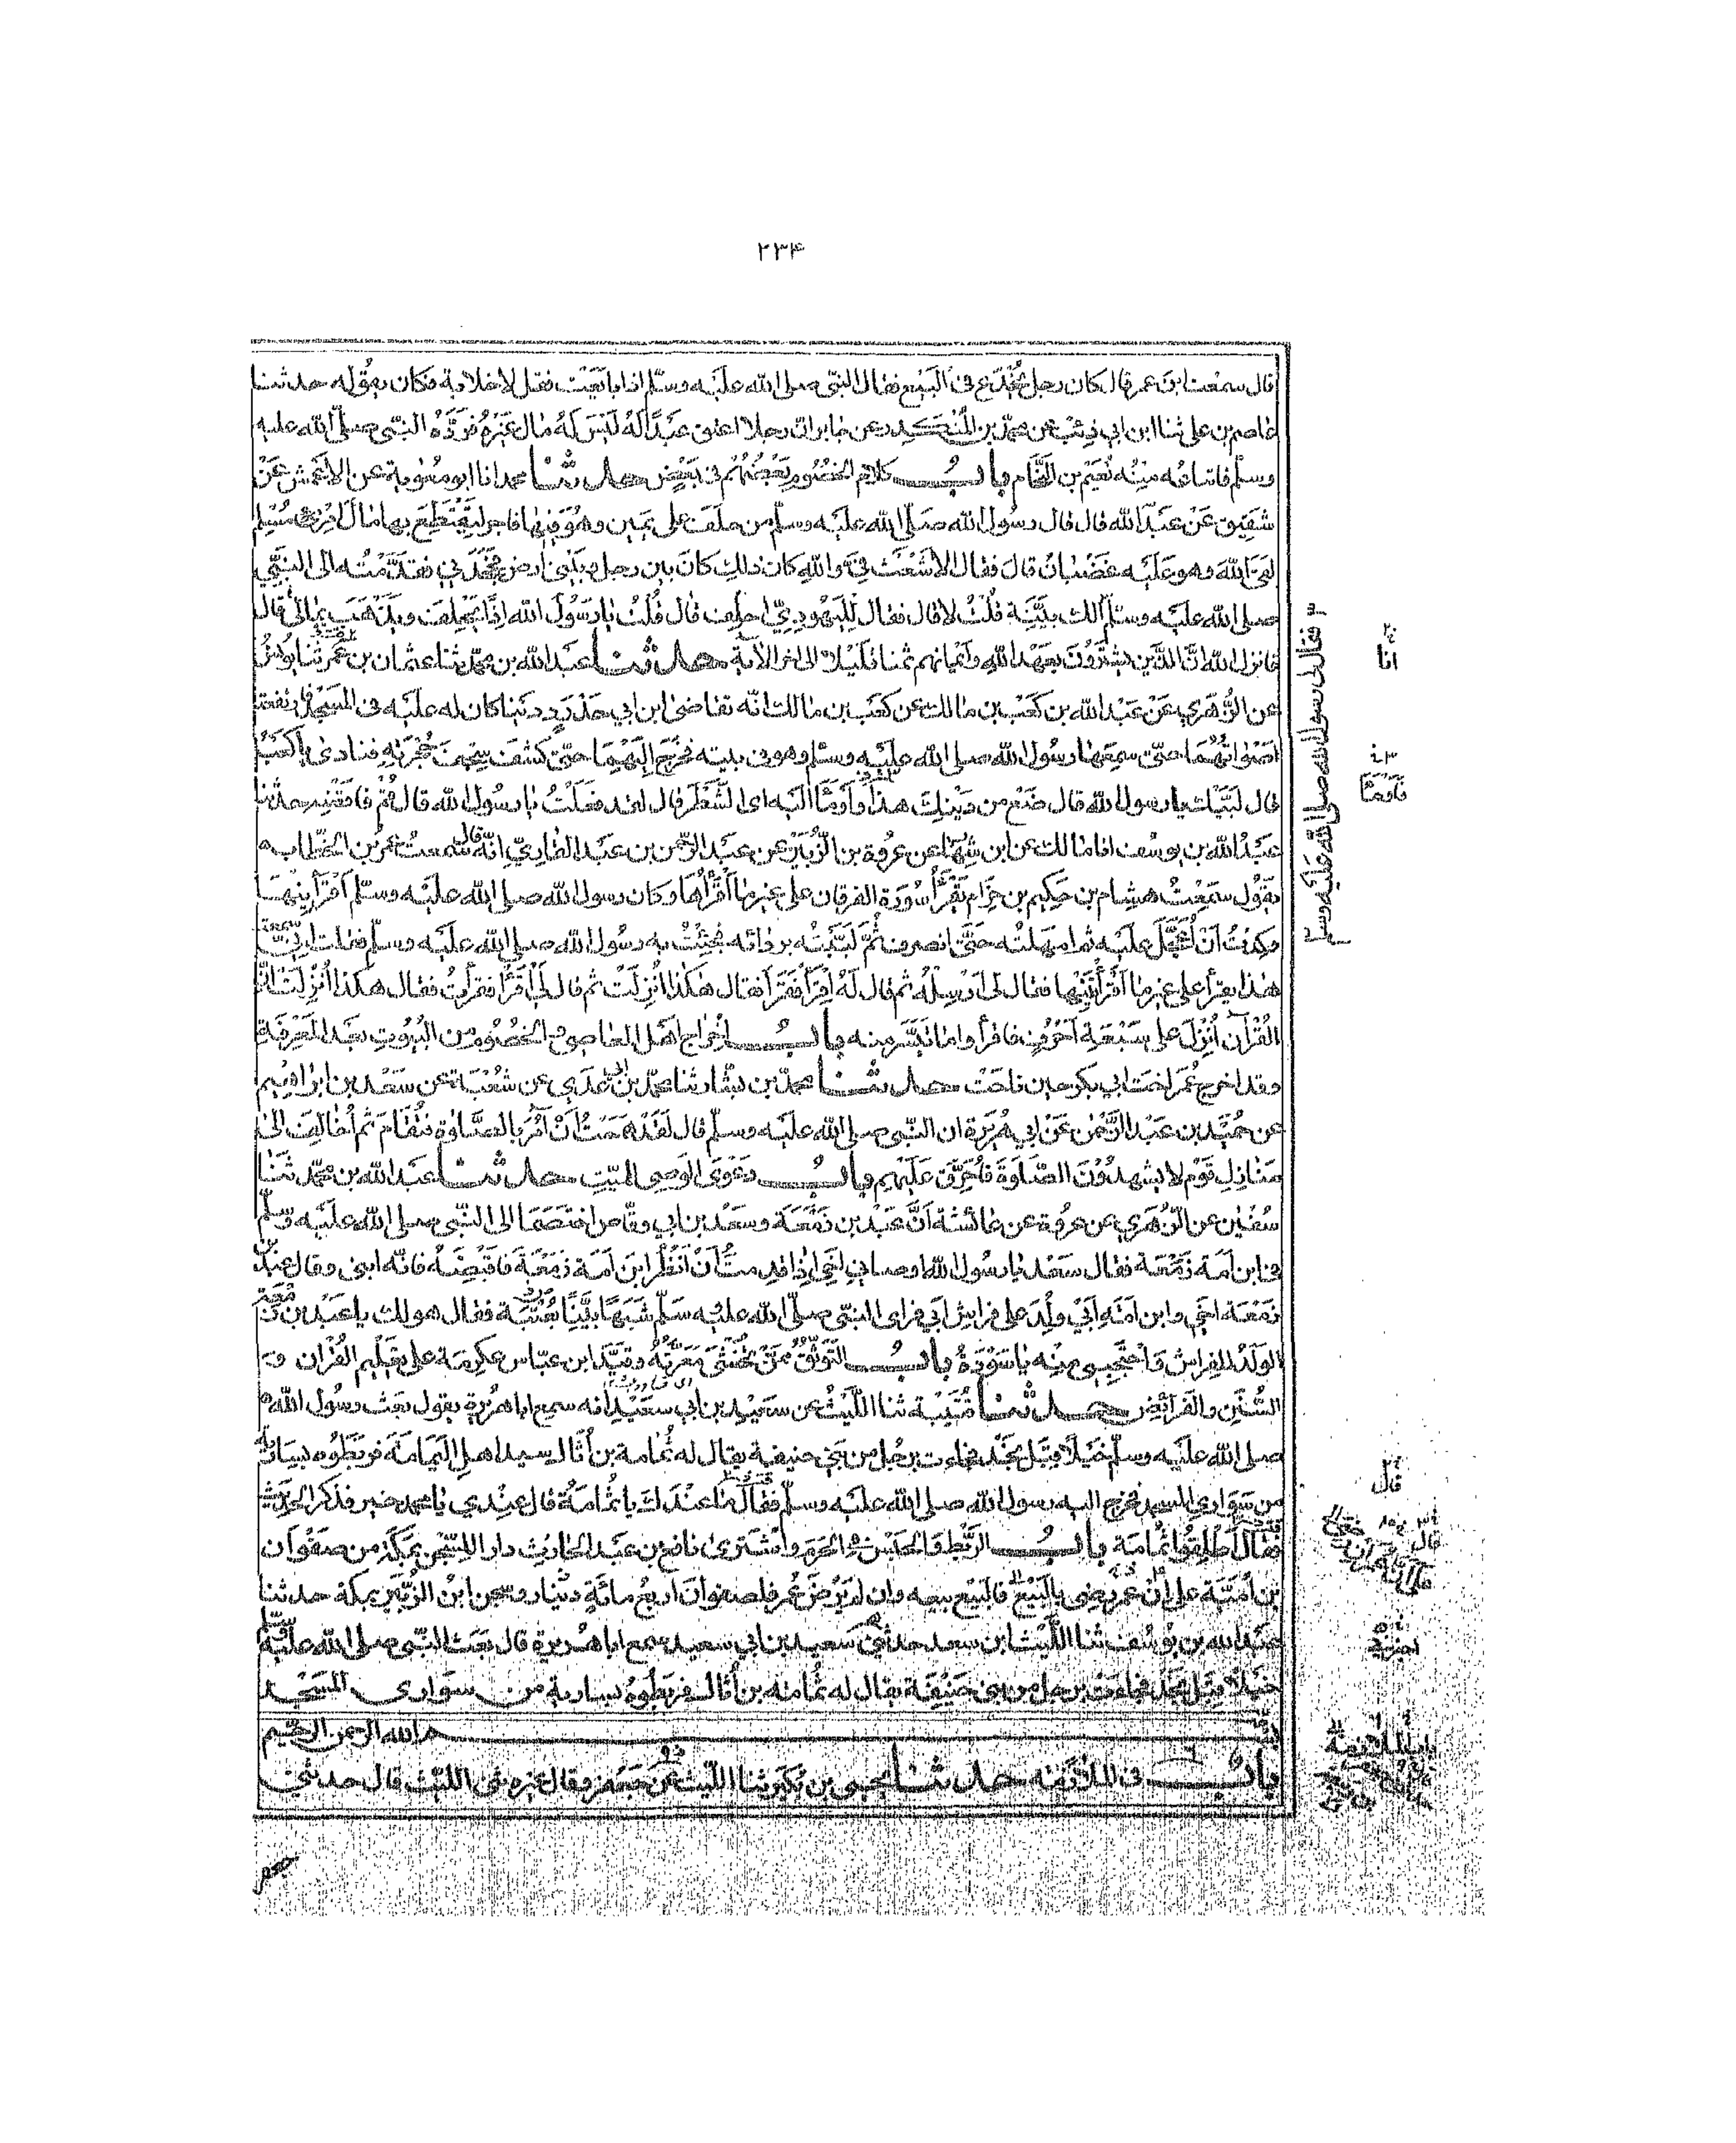 ٢٣۴
قال سمعت ابن عمر قال كان رجل يُخْدَع فى البَيْع فقال النبى صلى الله عليه وسلم اذا بايَعْت فقل لا خلابة فكان يقوله حدثنا
عاصم بن على ثنا ابن ابى ذِئب عن محمّد بن المُنْكَدِر عن جابر انّ رجلا اعتق عَبْدًا لَهُ لَيْسَ لَهُ مال غَيْرُهُ فَرَدَّهُ النبى صلّى الله عليه
وسلم فابتاعُه مِنْهُ نُعَيْم بن النَحّام بابُ كلام الخُصُوم بَعْضُهُمْ فى بَعْضٍ حدثنا محمد انا ابو مُعٰوية عن الاعْمَش عَنْ
شقيق عَنْ عَبْد الله قال قال رسُول الله صَلّى الله عليه وسلّم من حلَفَ على يَمين وهُوَ فيها فاجر لِيَقْتَطِعَ بها مَالَ امْرِئٍ مُسْلِم
لقىَ الله وهو عَلَيه غَضْبانُ قالَ فقال الاشْعَث فىَّ والله كان ذلك كانَ بين رجل وبَيْنى ارضٌ فجَحَدَنى فقدّمْتُه الى النبىّ
صلى الله عليه وسلم ألك بَيّنَة قُلْتُ لا قال فقال لِليَهُودِيّ احلِف قال قُلْتُ يا رَسُولَ الله اِذًا يَحْلِفَ ويَذْهَبَ بمالى قال
فانزل الله انّ الّذين يشترُونَ بعَهْد الله وَايْمانِهم ثمنا قليْلا الى اخر الاٰية حدثنا عبد الله بن محمّد ثنا عثمان بن عُمَر ثنا يُونسُ
عن الزُهْرى عَنْ عَبْد الله بن كَعْب بن مالك عن كعْب بن مالك انّه تقاضٰى ابن ابى حَدْرَدٍ دَيْنًا كان له علَيه فى المسْجِد فارتفعت
اصْواتُهُمَا حتّى سمِعَها رسُول الله صلى الله عليه وسلم وهو فى بيته فخرَج اِلَيْهِمَا حتّى كشَف سِجْفَ حُجْرَتِهِ فنادى يا كَعْبُ
قال لَبَّيْك يا رسول الله قال ضَعْ من دَيْنِكَ هذا وَاَوْمَأَ اِلَيه اى الشَّطْرَ قال لقد فعَلْتُ يا رسُول الله قال قُمْ فاقْضِهِ حدثنا
عبْدُ الله بن يوسُف انا مالك عن ابن شِهٰاب عن عُروة بن الزُّبَيْر عن عبد الرّحمٰن بن عَبْد القارِيّ انّه قال سمعتُ عُمر بن الخطّاب
يَقُول سَمِعْتُ هِشام بن حَكيم بن حِزام يَقْرَأ سُوْرَة الفرقان على غيرما اَقْرَأُها وكان رسول الله صلى الله عليه وسلّم اَقْرَأَنِيْهَا
وكِدْتُ اَنْ اَعْجَلَ علَيه ثم امهلته حَتّى انصرف ثُمّ لَبَّبْتُه بردائه فجِئْتُ به رسُول الله صلى الله عليه وسلّم فقلت انى سمعت
هذا يقرأ على غيرما اَقْرَأْتَنِيْها فقال لى ارْسِلْهُ ثم قال لَهُ اِقْرَأ فَقَرَأَ فقال هٰكذا اُنْزِلَتْ ثم قال لى اقْرَأ فقرأتُ فقال هكذا اُنْزِلَتْ انّ
القُرْاٰن اُنْزِلَ على سَبْعَة اَحْرُف فاقرأوا ما تيَسّر منه بابُ اخراج اهْل المعاصى والخُصُوم من البُيُوت بَعْد المَعْرِفَة
وقد اخرج عُمَر اخت ابى بكر حين ناحَتْ حدثنا محمّد بن بشّار ثنا محمّد بن ابى عَدِى عن شُعْبَة عن سَعْد بن ابراهيم
عن حُمَيْد بن عبْد الرّحْمٰن عَنْ ابى هُرَيْرَة ان النّبى صلى الله عليه وسلّم قال لقَدْ هَمَمْتُ اَنْ اٰمُرَ بالصَّلٰوةِ فتُقَامَ ثم اُخالِفَ الى
مَنَازِل قَوْم لا يشهدُوْنَ الصَّلوةَ فَاُحَرِّق عَلَيْهِم بابُ دَعْوَى الوَصِى للميّتِ حدثنا عَبْد الله بن محمّد ثَنَا
سُفْيٰن عن الزُهْرى عن عُروة عن عائشة اَنَّ عَبْدَ بن زَمْعَة وسَعْد بن ابى وقّاص اختَصَمَا الى النّبى صلى الله عليه وسلّم
فى ابن اَمَة زَمْعَة فقال سَعْد يا رسُول الله اوصانى اَخى اِذَا قدِمتُ اَنْ اَنْظُر ابنَ اَمَة زَمْعَةَ فاَقْبِضَهُ فانّه ابنى وقال عَبْد بن
زَمْعَة اخى وابن اَمَة اَبى وُلِدَ على فراش اَبى فراى النبىّ صلّى الله عليه سَلّم شَبَهًا بَيّنًا بعُتْبَة فقال هو لك يا عَبْد بن زمعة
الولَدُ للفِراش وَاحْتَجِبى مِنْه يا سَوْدَةُ بابُ التَوَثُّق مِمَّنْ تُخْشٰى مَعَرَّتُهُ وقيَّدَ ابن عبّاس عِكرِمَة على تَعْلِيم القُرْاٰن و
السُّنَن والفَرَائِض حدثنا قُتَيْبَة ثنا اللّيْثُ عن سعِيد بن ابى سعَيْد انه سمِع ابا هُرَيرة يقول بعَث رسُول الله
صلى الله عليه وسلّم خَيْلًا قِبَل نَجْد فجاءت برجُل من بَنى حنيفة يقال له ثُمامة بن اُثال سيد اهلِ اليَمامَة فربَطُوه بسَارية
من سَوَارى المسجد فخرج اليه رسول الله صلى الله عليه وسلّم فقال ما عنْدَك يا ثُمامَةُ قال عِنْدى يا محمد خير فذكر الحديث
فقال اَطْلِقُوا ثُمامَة بابُ الرَّبْطِ وَالحَبْس فى الحَرَم واشْتَرى نافع بن عَبْد الحارث دار اللسّجن بمكّة من صَفْوان
بن اُمَيّة على انّ عُمر رضى بالبَيْع فالبَيْع بيعه وان لم يَرْضَ عُمر فلصفوانَ اربع مائة دينار وسجن ابنُ الزُّبَيْر بمكة حدثنا
عبْد الله بن يُوسُف ثنا اللّيْث ابن سعد حدثنى سَعيد بن ابى سعيد سمع ابا هُريرة قال بعَث النّبى صلى الله عليه وسلّم
خَيْلًا قِبَل نَجْد فجاءت برجل من بنى حَنِيْفَة يقال له ثُمامة بن اُثال فربَطُوهُ بسارية من سوارى المَسْجد
بسم الله الرحمن الرحيم
بابُ فى المُلازَمَة حدثنا يحيى بن بُكَير ثنا اللّيث عن جَعفر وقال غيره ثنى اللّيث قال حدثنى
فقال لى رسول الله صلى الله عليه وسلم
انا
قال
اخبرنى
باب الملازمة